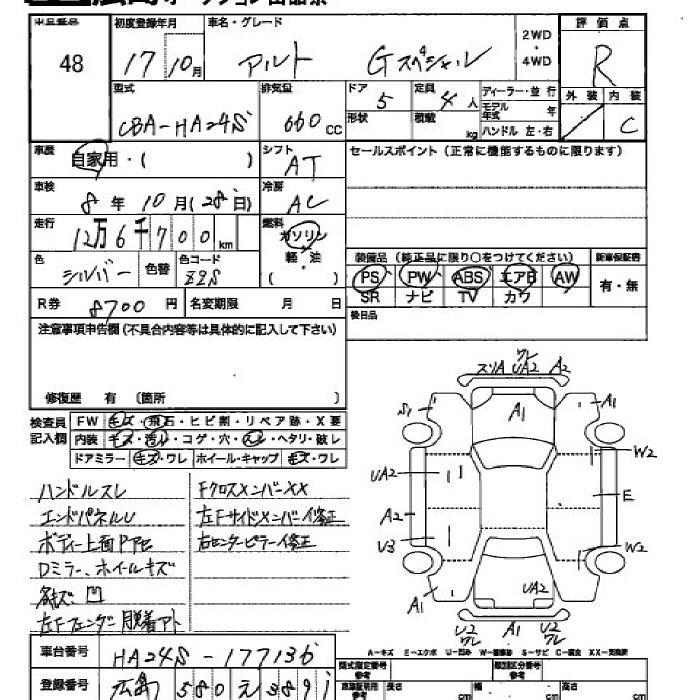 出品番号 初度登録年月 車名・グレード 2WD・4WD 評価点
48 17 10月 アルト Gスペシャル R
型式 排気量 ドア 5 定員 4人 ディーラー・並行 外装 内装
CBA-HA24S 660cc 形状 積載 kg モデル年式 年 C
ハンドル 左・右
車歴 自家用・( ) シフト AT セールスポイント(正常に機能するものに限ります)
車検 8年10月(28日) 冷房 AC
走行 12万6千700km 燃料 ガソリン 軽・油 ( )
色 シルバー 色替 色コード Z2S 装備品(純正品に限り○をつけてください) 新車保証書
PS PW ABS エアB AW 有・無
R券 8700円 名変期限 月 日 SR ナビ TV カワ
後日品
注意事項申告欄(不具合内容等は具体的に記入して下さい)
修復歴 有 〔箇所 〕
検査員記入欄 FW キズ・飛石・ヒビ割・リペア跡・X要
内装 キズ・汚れ・コゲ・穴・スレ・ヘタリ・破レ
ドアミラー キズ・ワレ ホイール・キャップ キズ・ワレ
ハンドルスレ FクロスメンバーXX
エンドパネルU 左Fサイドメンバー修正
ボディー上面 右センターピラー修正
Dミラー、ホイールキズ
各キズ、凹
左Fフェンダー脱着アト
スリA ワレ UA2 A2
S1 A1 A1
UA2 W2
E
A2
U3 W2
UA2
A1 U2 ワレ A1 U2 ワレ A1
A-キズ E-エクボ U-凹み W-補修跡 S-サビ C-腐食 XX-交換済
車台番号 HA24S-177136 型式指定番号 類別区分番号
登録番号 広島 580 え 3891 長さ cm 幅 cm 高さ cm